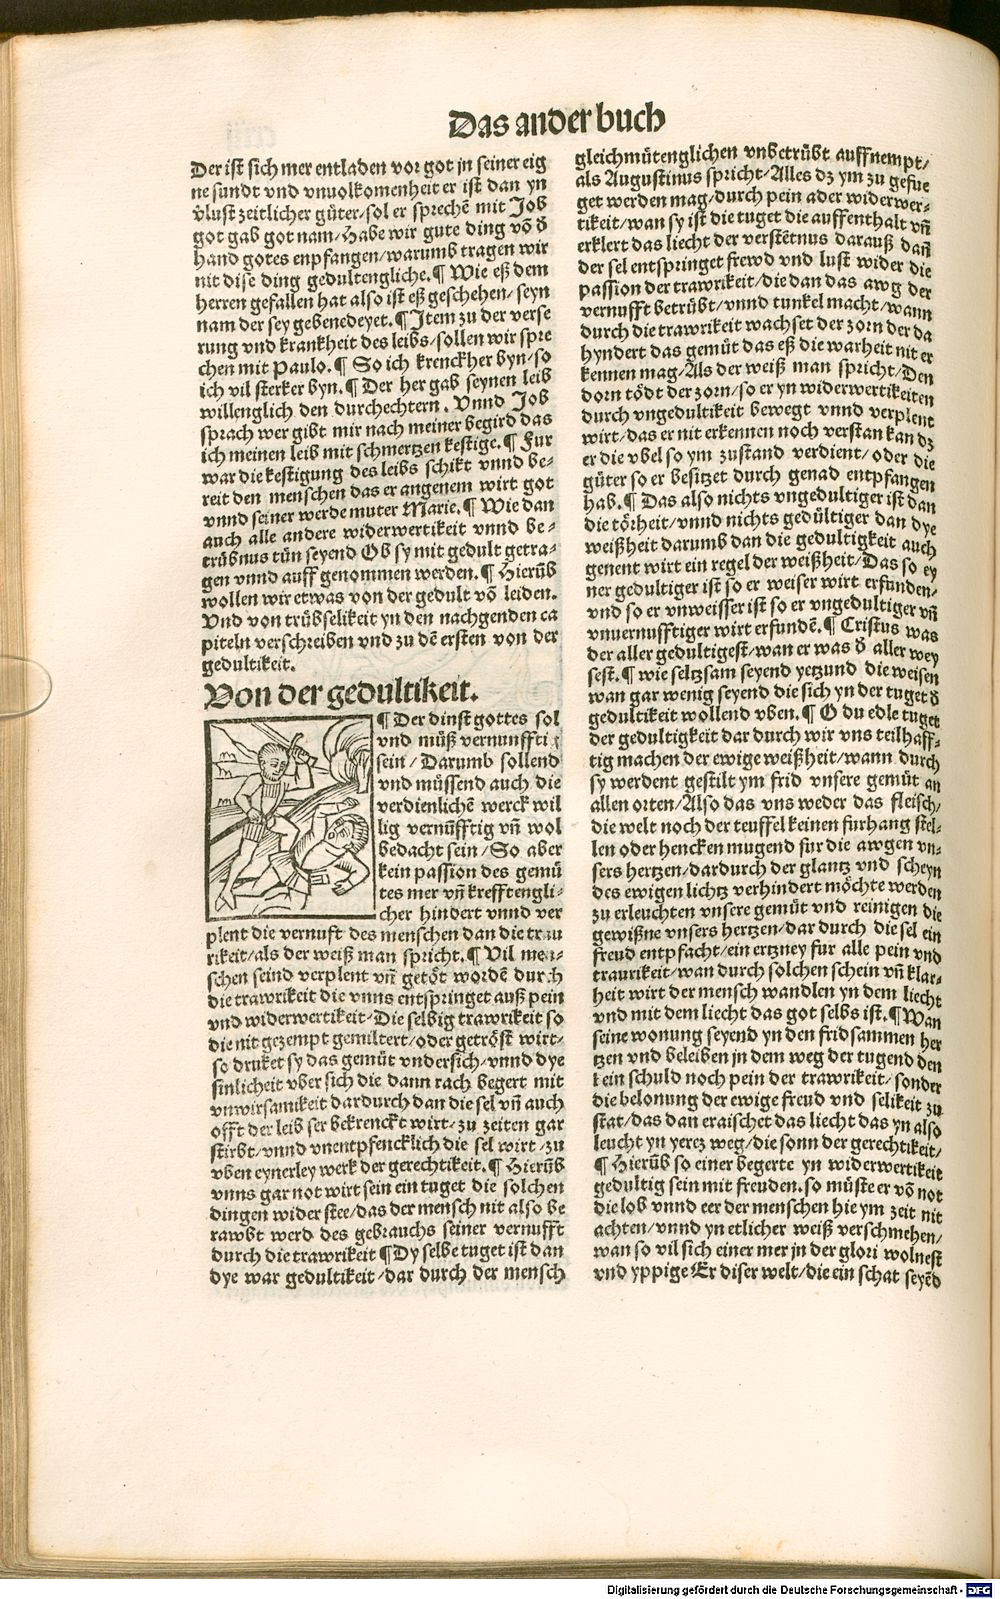 Das ander buch
Der ist sich mer entladen vor got jn seiner eig
ne sundt vnd vnuolkomenheit er ist dan yn
vlust zeitlicher güter/sol er sprechē mit Job
got gab got nam/Habe wir gute ding vō d̕
hand gotes enpfangen/warumb tragen wir
nit dise ding gedultengliche.¶ Wie eß dem
herren gefallen hat also ist eß geschehen/seyn
nam der sey gebenedeyet.¶ Item zu der verse
rung vnd krankheit des leibs/sollen wir spre
chen mit Paulo.¶ So ich krenckher byn/so
ich vil sterker byn.¶ Der her gab seynen leib
willenglich den durchechtern. Vnnd Job
sprach wer gibt mir nach meiner begird das
ich meinen leib mit schmertzen kestige.¶ Fur
war die kestigung des leibs schikt vnnd be-
reit den menschen das er angenem wirt got
vnnd seiner werde muter Marie.¶ Wie dan
auch alle andere widerwertikeit vnnd be-
trübnus tün seyend Ob sy mit gedult getra-
gen vnnd auff genommen werden.¶ Hierūb
wollen wir etwas von der gedult vō leiden.
Vnd von trübselikeit yn den nachgenden ca
piteln verschreiben vnd zu dē ersten von der
gedultikeit.
Von der gedultikeit.
¶ Der dinst gottes sol
vnd müß vernunffti
sein/Darumb sollend
vnd müssend auch die
verdienlichē werck wil
lig vernüfftig vn̄ wol
bedacht sein/So aber
kein passion des gemü
tes mer vn̄ krefftengli-
cher hindert vnnd ver
plent die vernuft des menschen dan die trau
rikeit/als der weiß man spricht.¶ Vil men-
schen seind verplent vn̄ getöt wordē durch
die trawrikeit die vnns entspringet auß pein
vnd widerwertikeit/Die selbig trawrikeit so
die nit gezempt gemiltert/oder getröst wirt/
so druket sy das gemüt vndersich/vnnd dye
sinlicheit vber sich die dann rach begert mit
vnwirsamikeit dardurch dan die sel vn̄ auch
offt der leib ser bekrenckt wirt/zu zeiten gar
stirbt/vnnd vnentpfencklich die sel wirt/zu
vben eynerley werk der gerechtikeit.¶ Hierūb
vnns gar not wirt sein ein tuget die solchen
dingen wider stee/das der mensch nit also be
rawbt werd des gebrauchs seiner vernufft
durch die trawrikeit ¶ Dy selbe tuget ist dan
dye war gedultikeit/dar durch der mensch
gleichmütenglichen vnbetrübt auffnempt/
als Augustinus spricht/Alles dz ym zu gefue
get werden mag/durch pein ader widerwer-
tikeit/wan sy ist die tuget die auffenthalt vn̄
erklert das liecht der verstētnus darauß dan̄
der sel entspringet frewd vnd lust wider die
passion der trawrikeit/die dan das awg der
vernufft betrübt/vnnd tunkel macht/wann
durch die trawrikeit wachset der zorn der da
hyndert das gemüt das eß die warheit nit er
kennen mag/Als der weiß man spricht/Den
dorn tödt der zorn/so er yn widerwertikeiten
durch vngedultikeit bewegt vnnd verplent
wirt/das er nit erkennen noch verstan kan dz
er die vbel so ym zustand verdient/oder die
güter so er besitzet durch genad entpfangen
hab.¶ Das also nichts vngedultiger ist dan
die törheit/vnnd nichts gedültiger dan dye
weißheit darumb dan die gedultigkeit auch
genent wirt ein regel der weißheit/Das so ey
ner gedultiger ist so er weiser wirt erfunden/
vnd so er vnweisser ist so er vngedultiger vn̄
vnuernufftiger wirt erfundē.¶ Cristus was
der aller gedultigest/wan er was d̕ aller wey
sest.¶ wie seltzsam seyend yetzund die weisen
wan gar wenig seyend die sich yn der tuget d̕
gedultikeit wollend vben.¶ O du edle tuget
der gedultigkeit dar durch wir vns teilhaff-
tig machen der ewige weißheit/wann durch
sy werdent gestilt ym frid vnsere gemüt an
allen orten/Also das vns weder das fleisch/
die welt noch der teuffel keinen furhang stel-
len oder hencken mugend für die awgen vn-
sers hertzen/dardurch der glantz vnd scheyn
des ewigen lichtz verhindert möchte werden
zu erleuchten vnsere gemüt vnd reinigen die
gewißne vnsers hertzen/dar durch die sel ein
freud entpfacht/ein ertzney fur alle pein vnd
traurikeit/wan durch solchen schein vn̄ klar-
heit wirt der mensch wandlen yn dem liecht
vnd mit dem liecht das got selbs ist.¶ Wan
seine wonung seyend yn den fridsammen her
tzen vnd beleiben jn dem weg der tugend den
kein schuld noch pein der trawrikeit/sonder
die belonung der ewige freud vnd selikeit zu
stat/das dan eraischet das liecht das yn also
leucht yn yerez weg/die sonn der gerechtikeit/
¶ Hierūb so einer begerte yn widerwertikeit
gedultig sein mit freuden.so müste er vō not
die lob vnnd eer der menschen hie ym zeit nit
achten/vnnd yn etlicher weiß verschmehen/
wan so vil sich einer mer jn der glori wolnest
vnd yppige Er diser welt/die ein schat seyēd
Digitalisierung gefördert durch die Deutsche Forschungsgemeinschaft - DFG